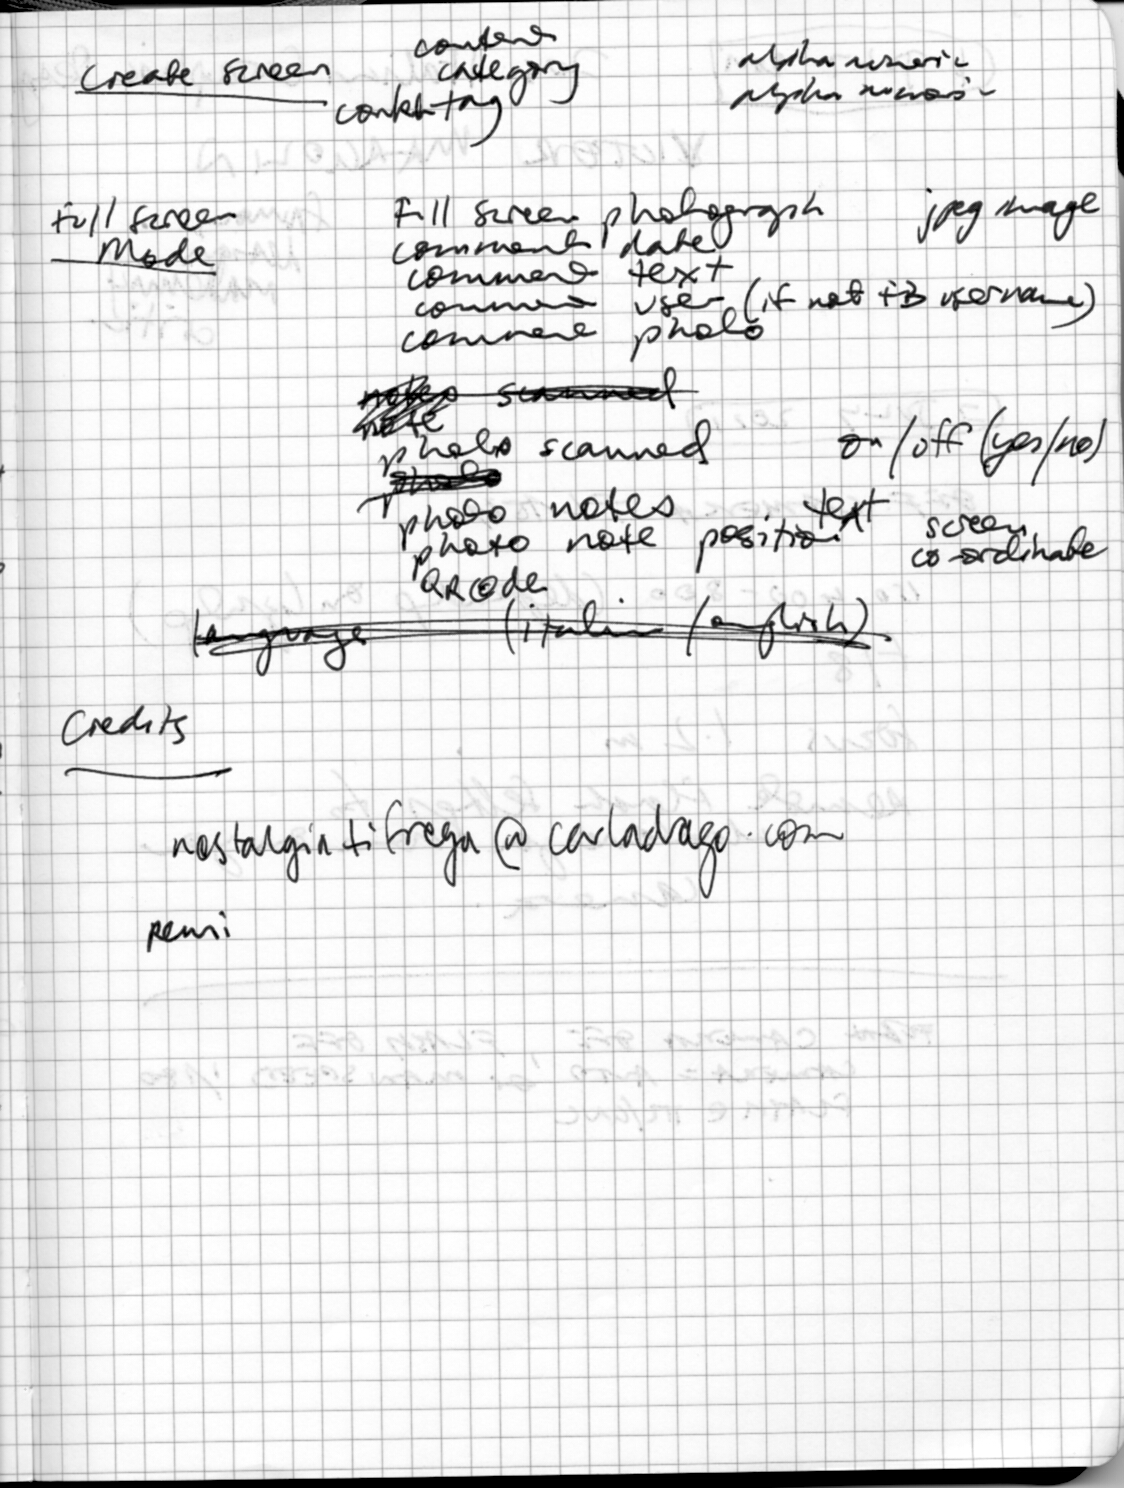 content
Create screen category alpha numeric
content tag alpha numeric
Full screen Full screen photograph jpeg image
Mode comment date
comment text
comment user (if not FB username)
comment photo
notes scanned
note
photo scanned on/off (yes/no)
photo
photo notes text
photo note position screen
co-ordinate
QR code
language (italian/english)
Credits
nostalgiatifrega@carladrago.com